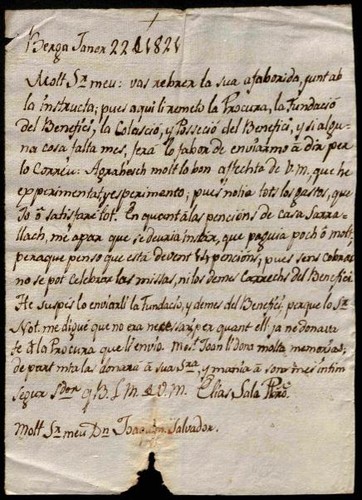 Berga Janer 22 d 1821
Molt Sr. meu: vas rebrer la sua afaborida, junt ab
la instructa; pues aqui li remeto la Procura, la Fundació
del Benefici, la Colasció, y Posseció del Benefici, y si algu-
na cosa falta mes, fera lo fabor de enviarmo á dir per
lo Correu: Agrahesch molt lo bon affechte de V.M. que he
expperimentat y esperimento; pues notia tots los gastos, que
Jo o satisfare tot. En quant á las pencións de Casa Sarra-
llach, me apar que se deuria instar, que paguia poch ó molt
peraque penso que está devent pencións, pues sens cobrar
no se pot celebrar las missas, ni los demes Carrechs del Benefici
He suspés lo enviarli la Fundació, y demes del Benefici, perque lo Sr.
Not. me digué que no era necessari, per quant ell ja ne donava
fe á la Procura que li envio. Mes. Joan li dona molta memorias,
de part mia las donará á sua Sra, y mania á son mes intim
segur Sdor q. B. S. M. de V.M. Elias Sala Pbre.
Molt Sr. meu Dn. Joaquim Salvador.